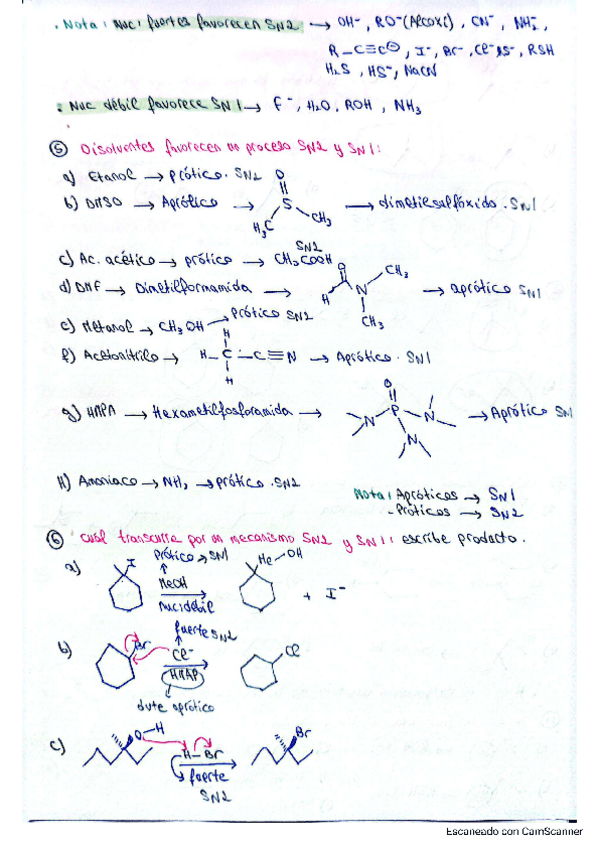 . Nota: Nuc. fuertes favorecen SN2 → OH⁻, RO⁻(Alcoxi), CN⁻, NH₂⁻,
R-C≡C⊖, I⁻, Br⁻, Cl⁻, RSH
H₂S, HS⁻, NaCN
Nuc débil favorece SN1 → F⁻, H₂O, ROH, NH₃
⑤ Disolventes favorecen un proceso SN2 y SN1:
a) Etanol → prótico. SN2
b) DMSO → Aprótico → O S CH₃ H₃C → dimetilsulfóxido. SN1
c) Ac. acético → prótico → CH₃COOH SN2
d) DMF → Dimetilformamida → O H N CH₃ CH₃ → aprótico SN1
e) Metanol → CH₃OH → Prótico SN2
f) Acetonitrilo → H-C-C≡N H H → Aprótico. SN1
g) HMPA → Hexametilfosforamida → O P N N N → Aprótico SN1
H) Amoniaco → NH₃ → prótico. SN2
Nota: Apróticos → SN1
- Próticos → SN2
⑥ Cual transcurre por un mecanismo SN2 y SN1: escribe producto.
prótico → SN1
a) I MeOH nuc débil → Me OH + I⁻
fuerte SN2
b) Br Cl⁻ HMAP → Cl
dute aprótico
c) O-H H-Br → Br
fuerte
SN2
Escaneado con CamScanner